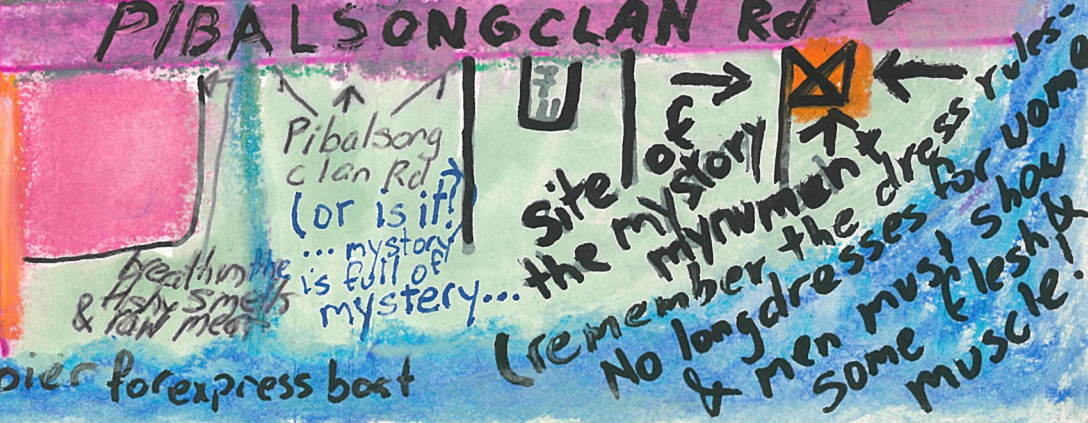 PIBALSONGCLAN Rd
Pibalsong
clan Rd
(or is it?)
...mystory
is full of
mystery...
breath in the
& fishy smells
& raw meat
pier for express boat
site of
the mystory
mynument
(remember the dress rules-
No long dresses for women
& men must show
some flesh &
muscle!